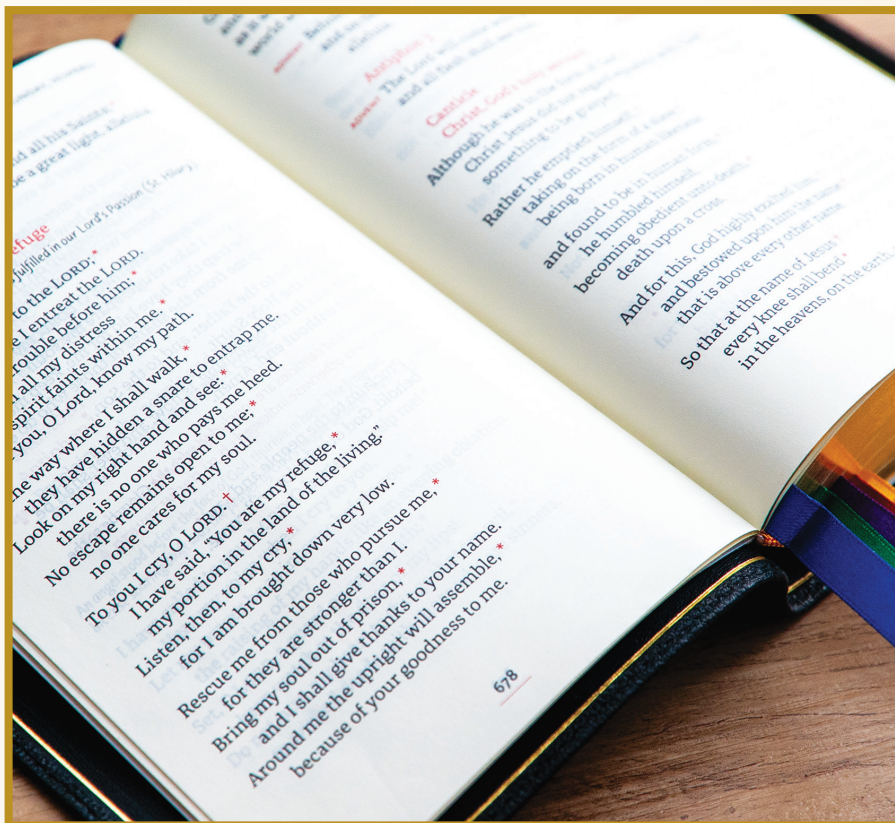 d all his Saints;
be a great light, alleluia.
fulfilled in our Lord's Passion (St. Hilary).
efuge
to the LORD;*
e I entreat the LORD.
trouble before him;*
all my distress
spirit faints within me.*
you, O Lord, know my path.
he way where I shall walk,*
they have hidden a snare to entrap me.
Look on my right hand and see:*
there is no one who pays me heed.
No escape remains open to me;*
no one cares for my soul.
To you I cry, O LORD. †
I have said, “You are my refuge,*
my portion in the land of the living.”
Listen, then, to my cry,*
for I am brought down very low.
Rescue me from those who pursue me,*
for they are stronger than I.
Bring my soul out of prison,*
and I shall give thanks to your name.
Around me the upright will assemble,*
because of your goodness to me.
678
alleluia
Antiphon 3
ADVENT The Lord will come
and all flesh shall see
Canticle
Christ, God's holy servant
Although he was in the form of God,
Christ Jesus did not regard equality with God
something to be grasped.
Rather he emptied himself,
taking on the form of a slave,
being born in human likeness
and found to be in human form,*
he humbled himself,
becoming obedient unto death,*
death upon a cross.
And for this, God highly exalted him,
and bestowed upon him the name*
that is above every other name
So that at the name of Jesus*
every knee shall bend*
in the heavens, on the earth,